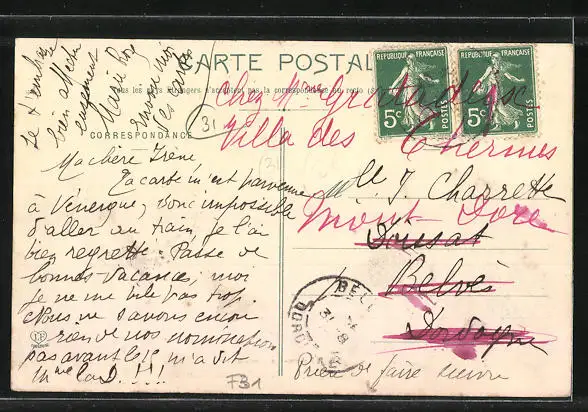 CARTE POSTALE
Tous les pays étrangers n'acceptent pas la correspondance au recto
CORRESPONDANCE
Je t'embrasse
bien affectu
eusement
Marie Rose
Envoie moi
les cartes
31
Ma chère Irène,
Ta carte m'est parvenue
à Vénerque, donc impossible
d'aller au train, je l'ai
bien regretté. Passe de
bonnes vacances, moi
je ne me bile pas trop.
Nous ne saurons encore
rien de nos nomination
pas avant le 15 m'a dit
Mme la D. !!!
RÉPUBLIQUE FRANÇAISE
5c
POSTES
RÉPUBLIQUE FRANÇAISE
5c
POSTES
Chez Mr
Villa des Thermes
Mlle J. Charrette
Mont-Dore
Siorac
Belvès
Dordogne
Prière de faire suivre
BEL
31 -8
DORDOGNE
731